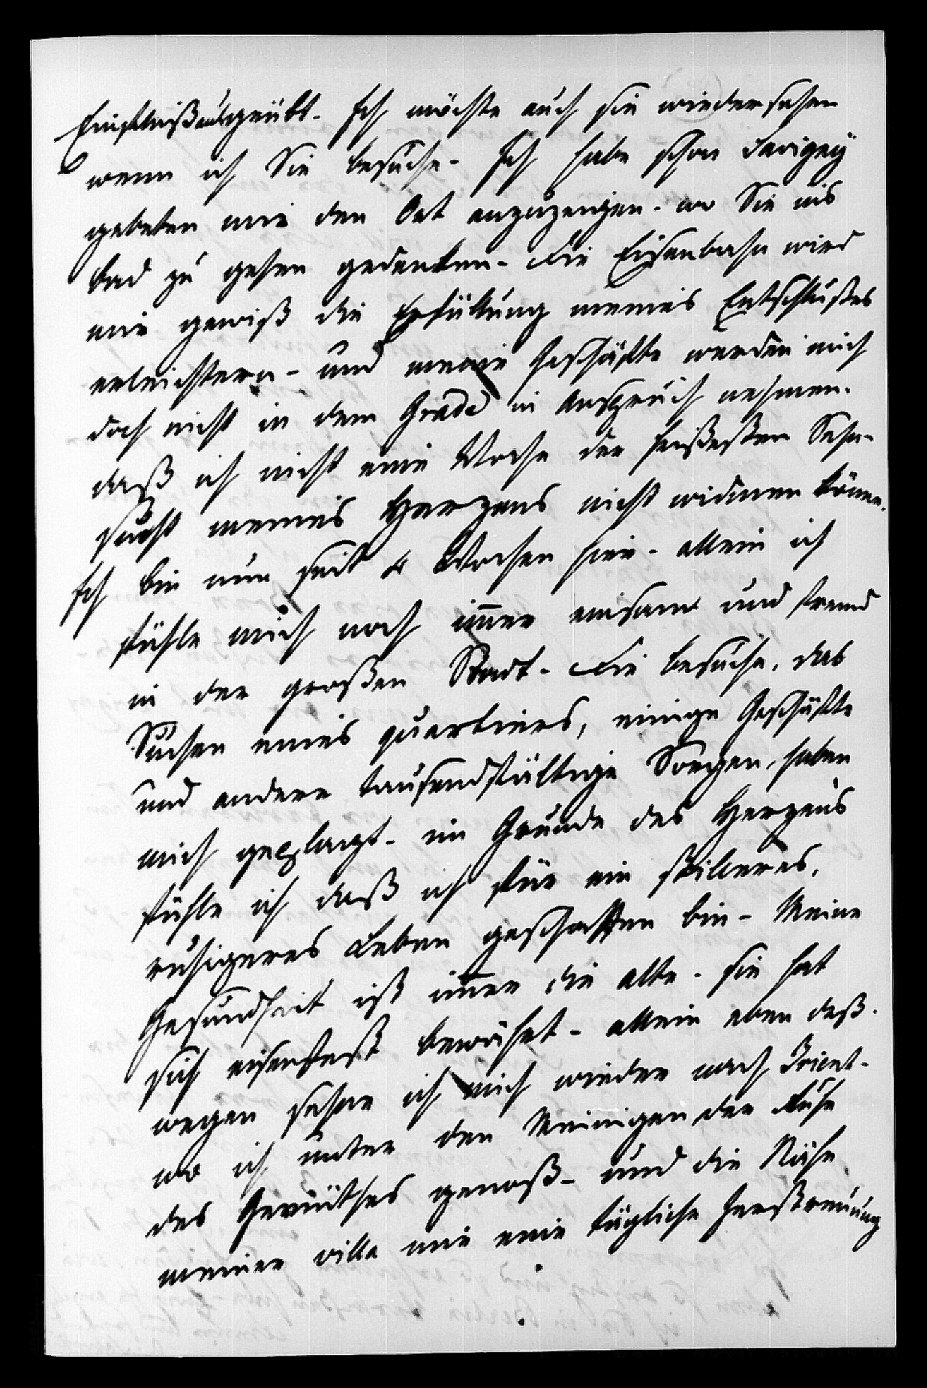 ausgeübt. Ich möchte auch sie wiedersehen
wenn ich Sie besuche. Ich habe schon Savigny
gebeten mir den Ort anzuzeigen. wo Sie ins
bad zu gehen gedenken. die Eisenbahn wird
mir gewiß die Erfüllung meines Entschlußes
erleichtern. und meine Geschäfte werden mich
doch nicht in dem Grade in Anspruch nehmen.
daß ich nicht eine Woche der heißesten Sehn-
sucht meines Herzens nicht widmen könne.
Ich bin nun seit 4 Wochen hier. allein ich
fühle mich noch im̅er einsam und fremd
in der großen Stadt. die besuche, das
Suchen eines quartiers, einige Geschäfte
und andere tausendfältige Sorgen haben
mich geplagt. im Grunde des Herzens
fühle ich daß ich für ein stilleres,
ruhigeres Leben geschaffen bin. Meine
Gesundheit ist im̅er die alte. sie hat
sich eisenfest bewährt. allein eben deß-
wegen sehne ich mich wieder nach Trient.
wo ich unter den Meinigen der Ruhe
des Gemüthes genoß. und die Nähe
meiner villa mir eine tägliche Zerstreuung